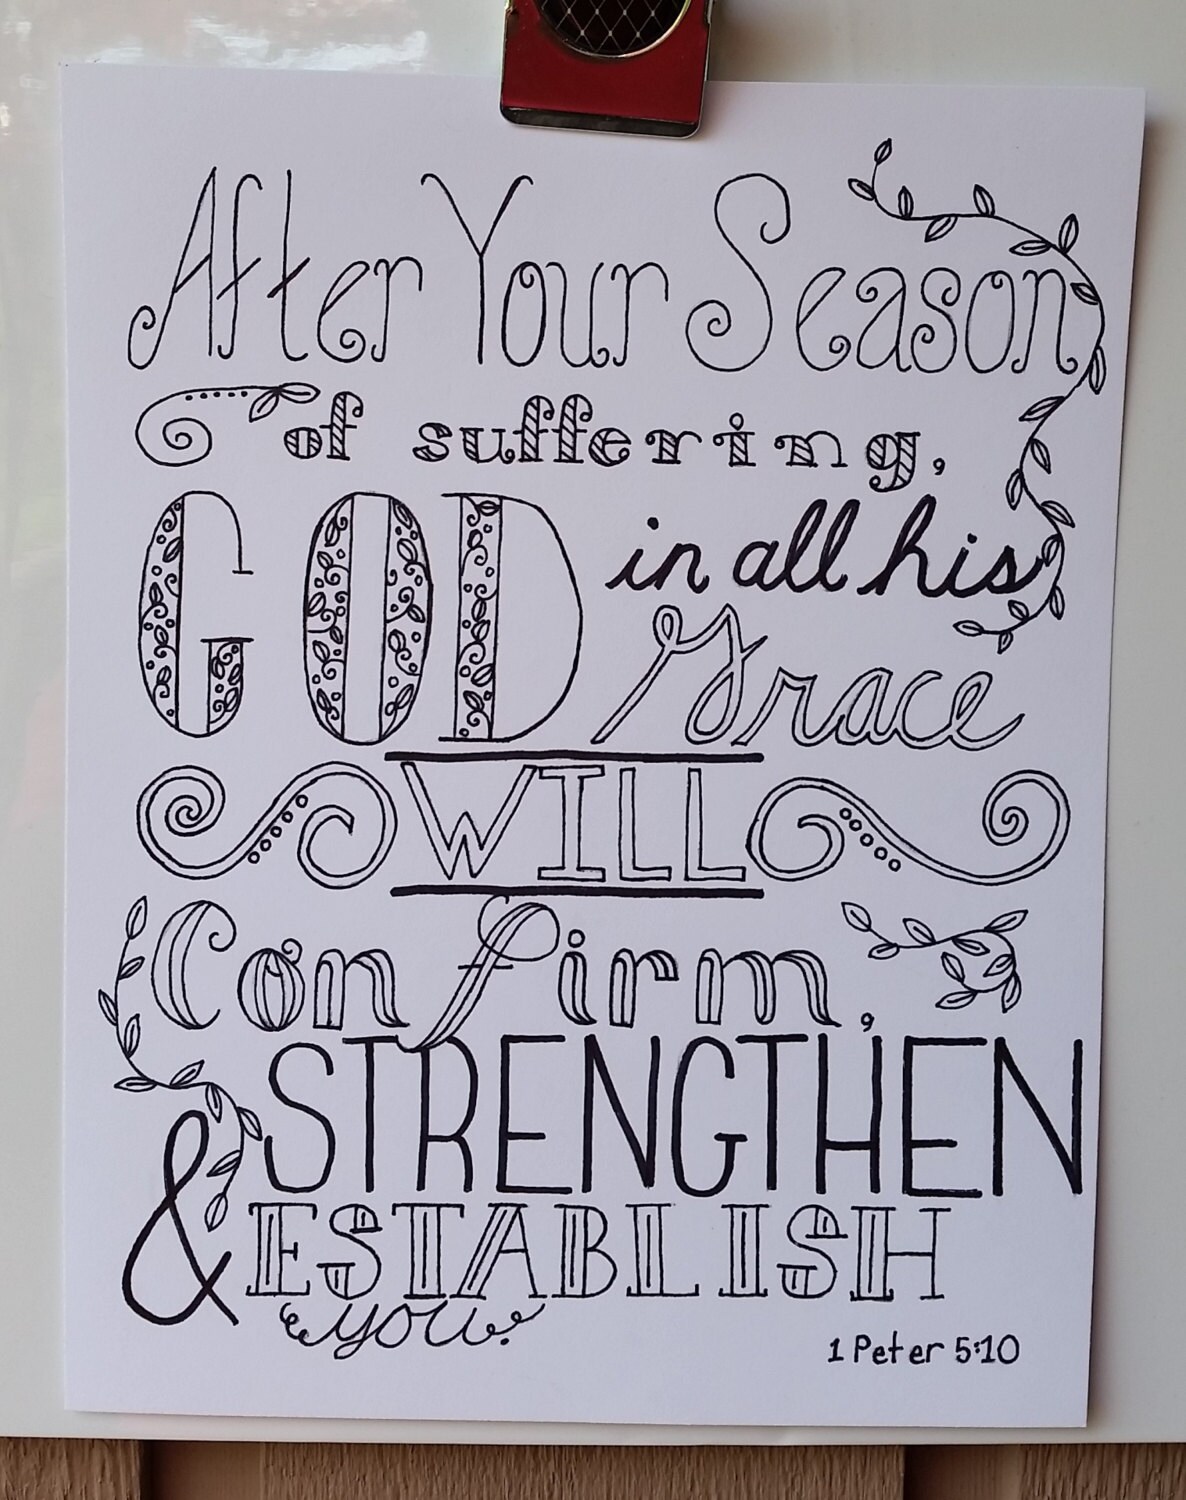 After Your Season
of suffering,
GOD in all his
Grace
WILL
Confirm,
STRENGTHEN
& ESTABLISH
you.
1 Peter 5:10